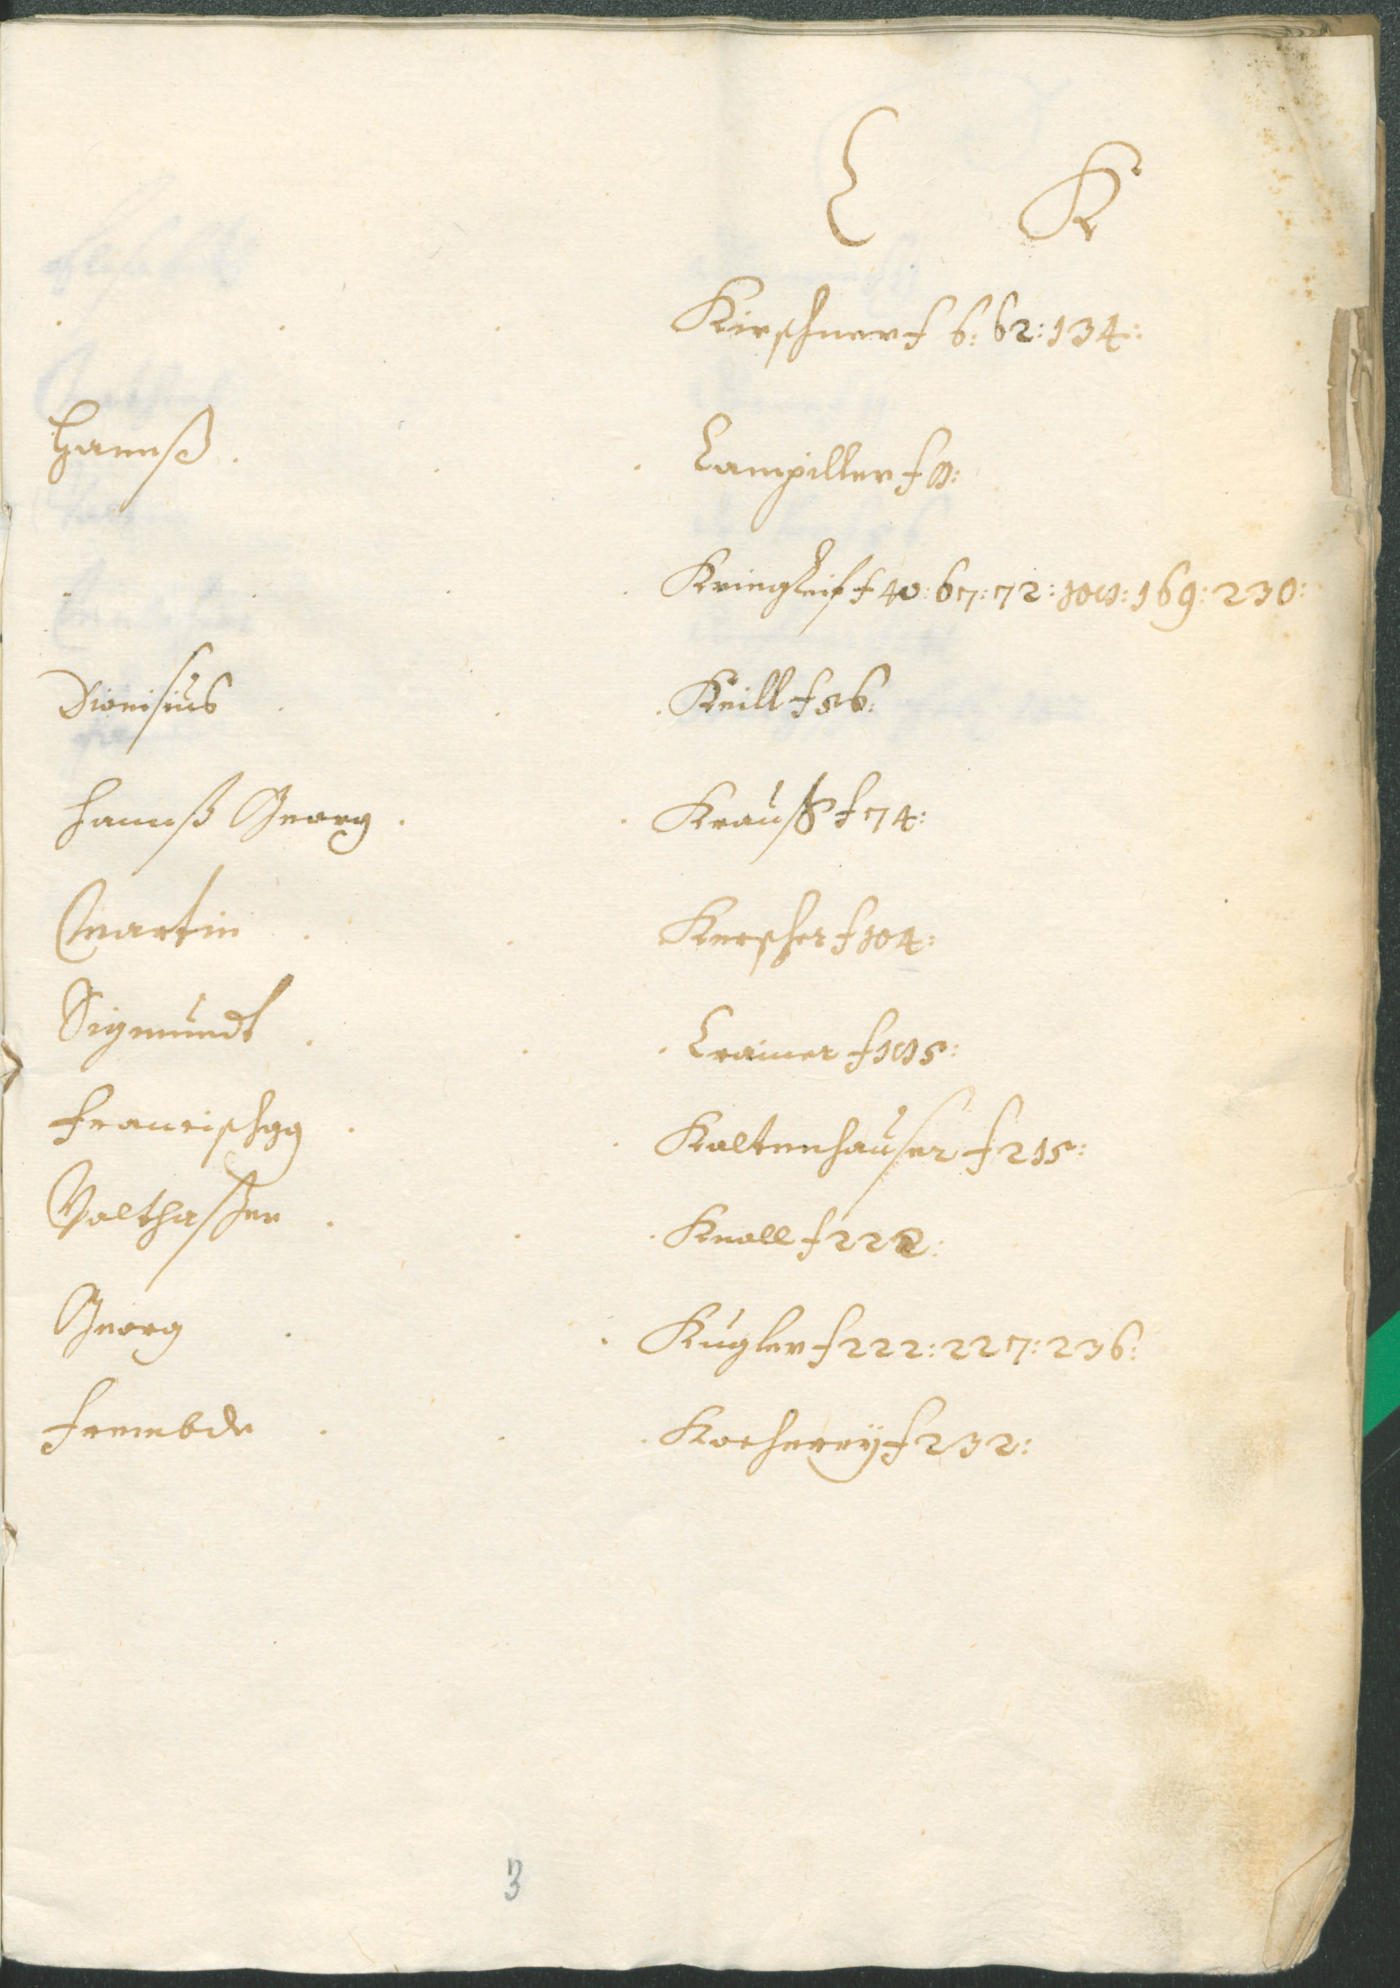 C K
. . . Kirschner f 6: 62: 134:
Hannß . . . Campiller f 11:
. . . Kriegleis f 40: 67: 72: 1011: 169: 230:
Dionisius . . . Keill f 56:
Hannß Georg . . Krauß f 74:
Martin . . Kerscher f 104:
Sigmundt . . . Cramer f 1115:
Francischgg . . Kaltenhauser f 215:
Balthaßer . . . Knoll f 222:
Georg . . Kugler f 222: 227: 236:
Frembde . . . Kocherey f 232:
3